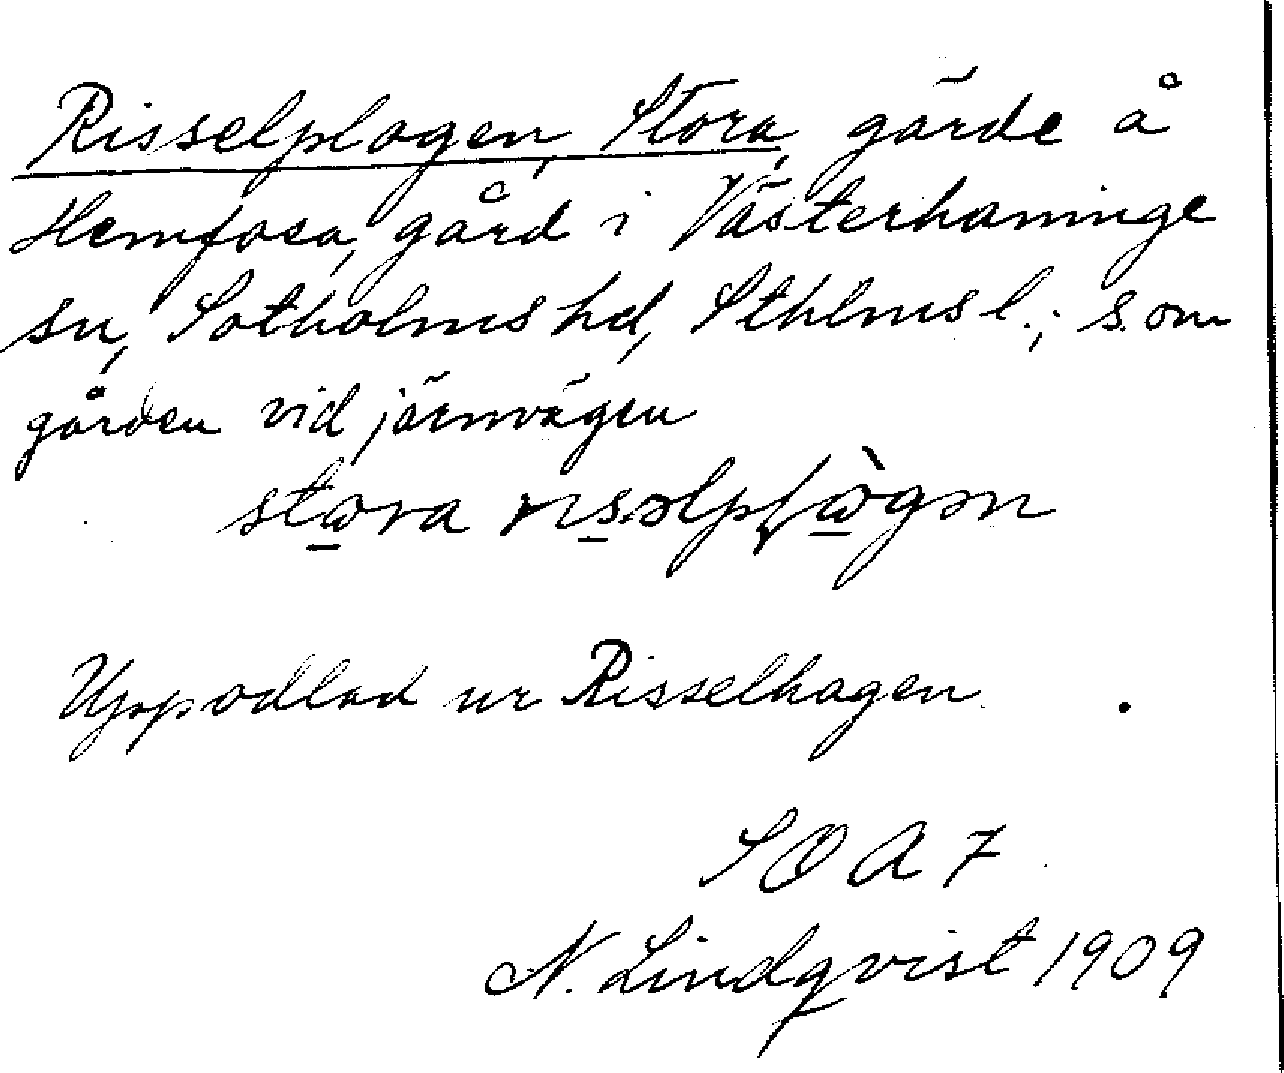 Risselplogen, Stora, gärde å
Hemfosa, gård i Västerhaninge
sn, Sotholms hd, Sthlms l.; s. om
gården vid järnvägen
stora risəlpɽògən
Uppodlad ur Risselhagen.
SOA 7
N. Lindqvist 1909